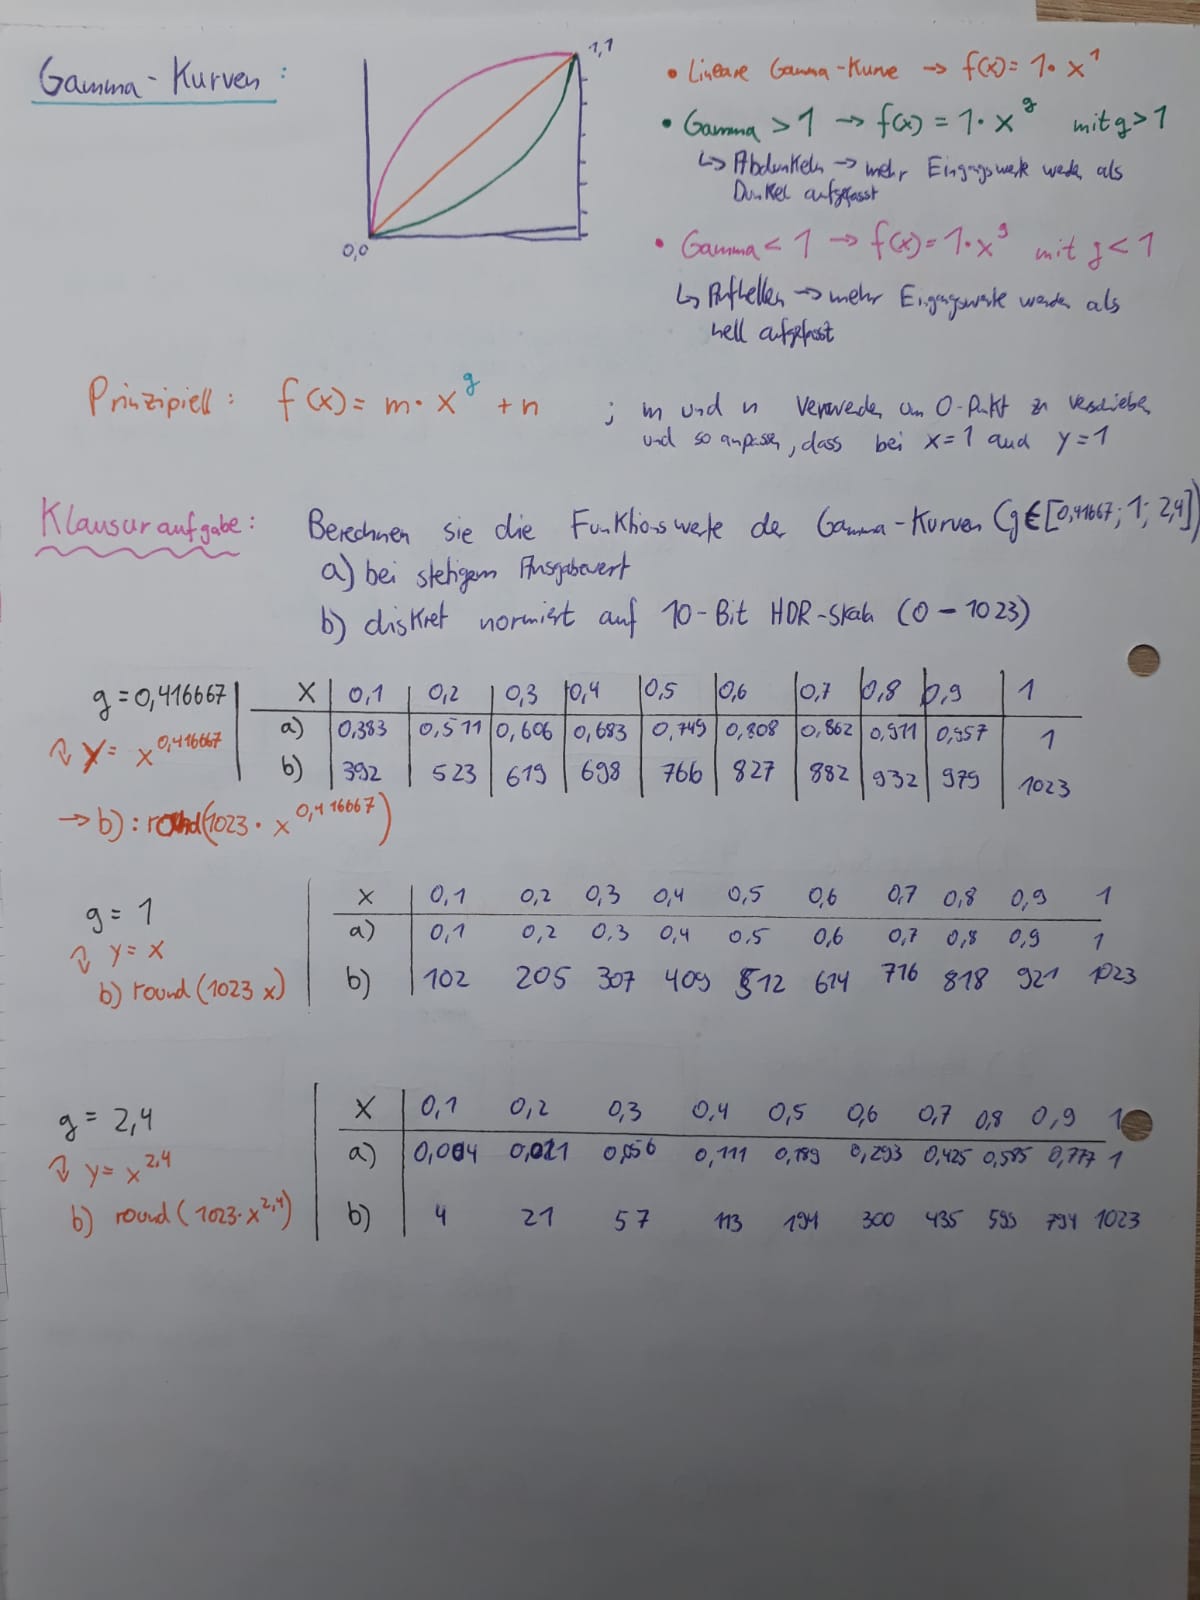 Gamma-Kurven:
1,1
0,0
• Lineare Gamma-Kurve → f(x) = 1·x^1
• Gamma > 1 → f(x) = 1·x^g mit g>1
↳ Abdunkeln → mehr Eingangswerte werden als
Dunkel aufgefasst
• Gamma < 1 → f(x) = 1·x^g mit g<1
↳ Aufhellen → mehr Eingangswerte werden als
hell aufgefasst
Prinzipiell: f(x) = m·x^g + n ; m und n verwenden um 0-Punkt zu verschieben
und so anpassen, dass bei x=1 auch y=1
Klausuraufgabe: Berechnen sie die Funktionswerte der Gamma-Kurven (g∈[0,41667; 1; 2,4])
a) bei stetigem Ausgabewert
b) diskret normiert auf 10-Bit HDR-Skala (0-1023)
g = 0,416667 | X | 0,1 | 0,2 | 0,3 | 0,4 | 0,5 | 0,6 | 0,7 | 0,8 | 0,9 | 1
y = x^0,416667 a) 0,383 | 0,511 | 0,606 | 0,683 | 0,749 | 0,808 | 0,862 | 0,911 | 0,957 | 1
b) 392 | 523 | 619 | 698 | 766 | 827 | 882 | 932 | 979 | 1023
→ b): round(1023·x^0,416667)
g = 1 | x | 0,1 0,2 0,3 0,4 0,5 0,6 0,7 0,8 0,9 1
y = x a) 0,1 0,2 0,3 0,4 0,5 0,6 0,7 0,8 0,9 1
b) round(1023 x) b) 102 205 307 409 512 614 716 818 921 1023
g = 2,4 | X | 0,1 0,2 0,3 0,4 0,5 0,6 0,7 0,8 0,9 1
y = x^2,4 a) 0,004 0,021 0,056 0,111 0,189 0,293 0,425 0,585 0,777 1
b) round(1023·x^2,4) b) 4 21 57 113 194 300 435 599 794 1023